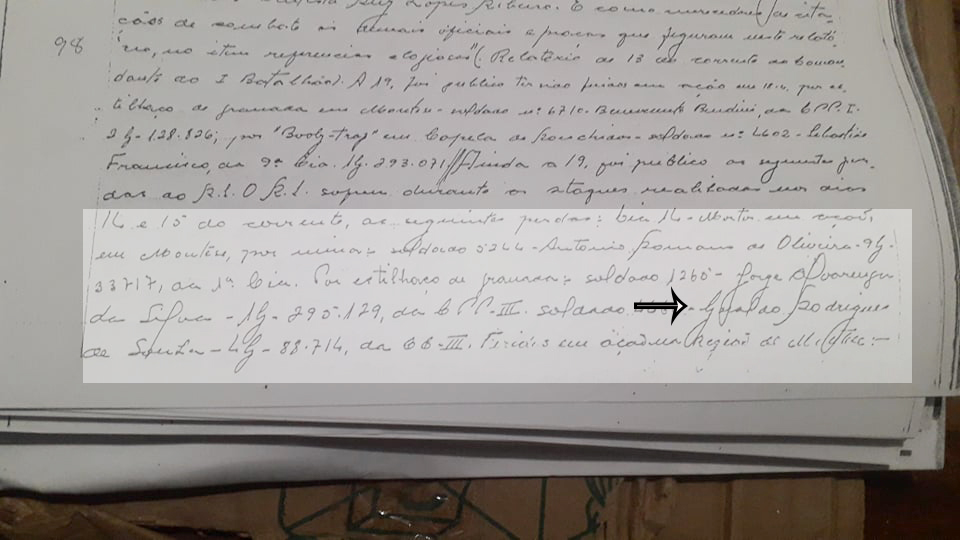 Ruy Lopes Ribeiro. E como merecedores
ções de combate os demais oficiais e praças que figuram neste relató-
98
rio, no item referencias elogiosas" (Relatório de 13 do corrente do Coman-
dante do I Batalhão). A 19, foi publico ter
tilhaço de granada em Montese - soldado nº 6710 - Benevenuto da C.P.P.I.
2G-128.826; por "Booby-trap" em Capela de Ronchidos - soldado nº 4602 - Sebastião
Francisco, da 9ª Cia. 1G. 293.071 // Ainda a 19, foi publico as seguintes per-
das ao R.I. O R.I. sofreu durante os ataques realizados nos dias
14 e 15 do corrente, as seguintes perdas: Dia 14 - Mortos em ação,
em Montese, por mina: - soldado 5244 - Antonio Romano de Oliveira - 9G.
33717, da 1ª Cia. Por estilhaço de granada: - soldado 1260 - Jorge Alvarenga
da Silva - 1G - 295.129, da C.P.P.-III. soldado - Rodrigues
de Souza - 4G - 88.714, da CC-III. Feridos em ação na Região de Montese: -